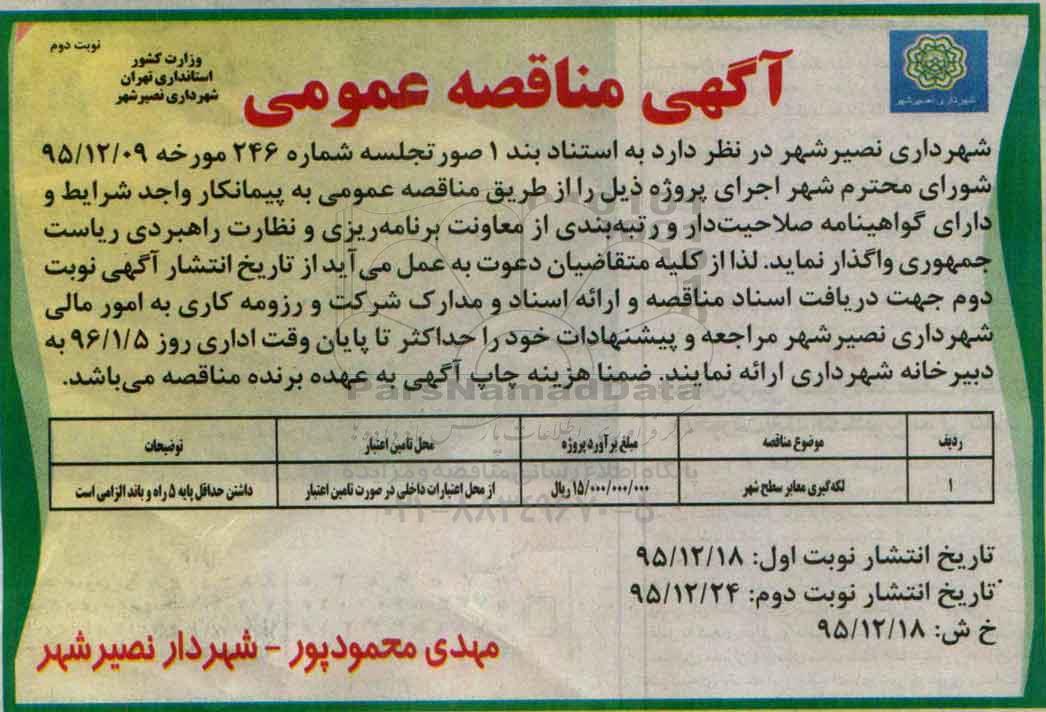 نوبت دوم
وزارت کشور
استانداری تهران
شهرداری نصیرشهر
آگهی مناقصه عمومی
شهرداری نصیرشهر
شهرداری نصیرشهر در نظر دارد به استناد بند ۱ صورتجلسه شماره ۲۴۶ مورخه ۹۵/۱۲/۰۹
شورای محترم شهر اجرای پروژه ذیل را از طریق مناقصه عمومی به پیمانکار واجد شرایط و
دارای گواهینامه صلاحیت‌دار و رتبه‌بندی از معاونت برنامه‌ریزی و نظارت راهبردی ریاست
جمهوری واگذار نماید. لذا از کلیه متقاضیان دعوت به عمل می‌آید از تاریخ انتشار آگهی نوبت
دوم جهت دریافت اسناد مناقصه و ارائه اسناد و مدارک شرکت و رزومه کاری به امور مالی
شهرداری نصیرشهر مراجعه و پیشنهادات خود را حداکثر تا پایان وقت اداری روز ۹۶/۱/۵ به
دبیرخانه شهرداری ارائه نمایند. ضمنا هزینه چاپ آگهی به عهده برنده مناقصه می‌باشد.
ParsNamadData
ردیف موضوع مناقصه مبلغ برآورد پروژه محل تامین اعتبار توضیحات
۱ لکه‌گیری معابر سطح شهر ۱۵/۰۰۰/۰۰۰/۰۰۰ ریال از محل اعتبارات داخلی در صورت تامین اعتبار داشتن حداقل پایه ۵ راه و باند الزامی است
پایگاه اطلاع رسانی مناقصه و مزایده
۰۲۱-۸۸۳۴۹۶۷۰-۵
تاریخ انتشار نوبت اول: ۹۵/۱۲/۱۸
تاریخ انتشار نوبت دوم: ۹۵/۱۲/۲۴
خ ش: ۹۵/۱۲/۱۸
مهدی محمودپور - شهردار نصیرشهر